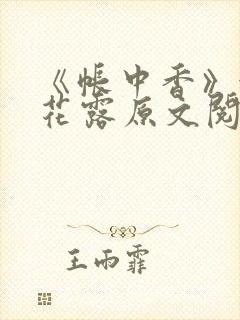 《帐中香》
花露原文阅
王雨霏